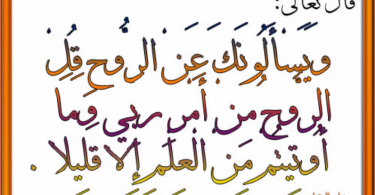 قال تعالى:
ويَسْأَلُونَكَ عَنِ الرُّوحِ قُلِ
الروحُ مِن أَمرِ رَبي وَما
أُوتِيتُم مِنَ العلم إلا قليلا .